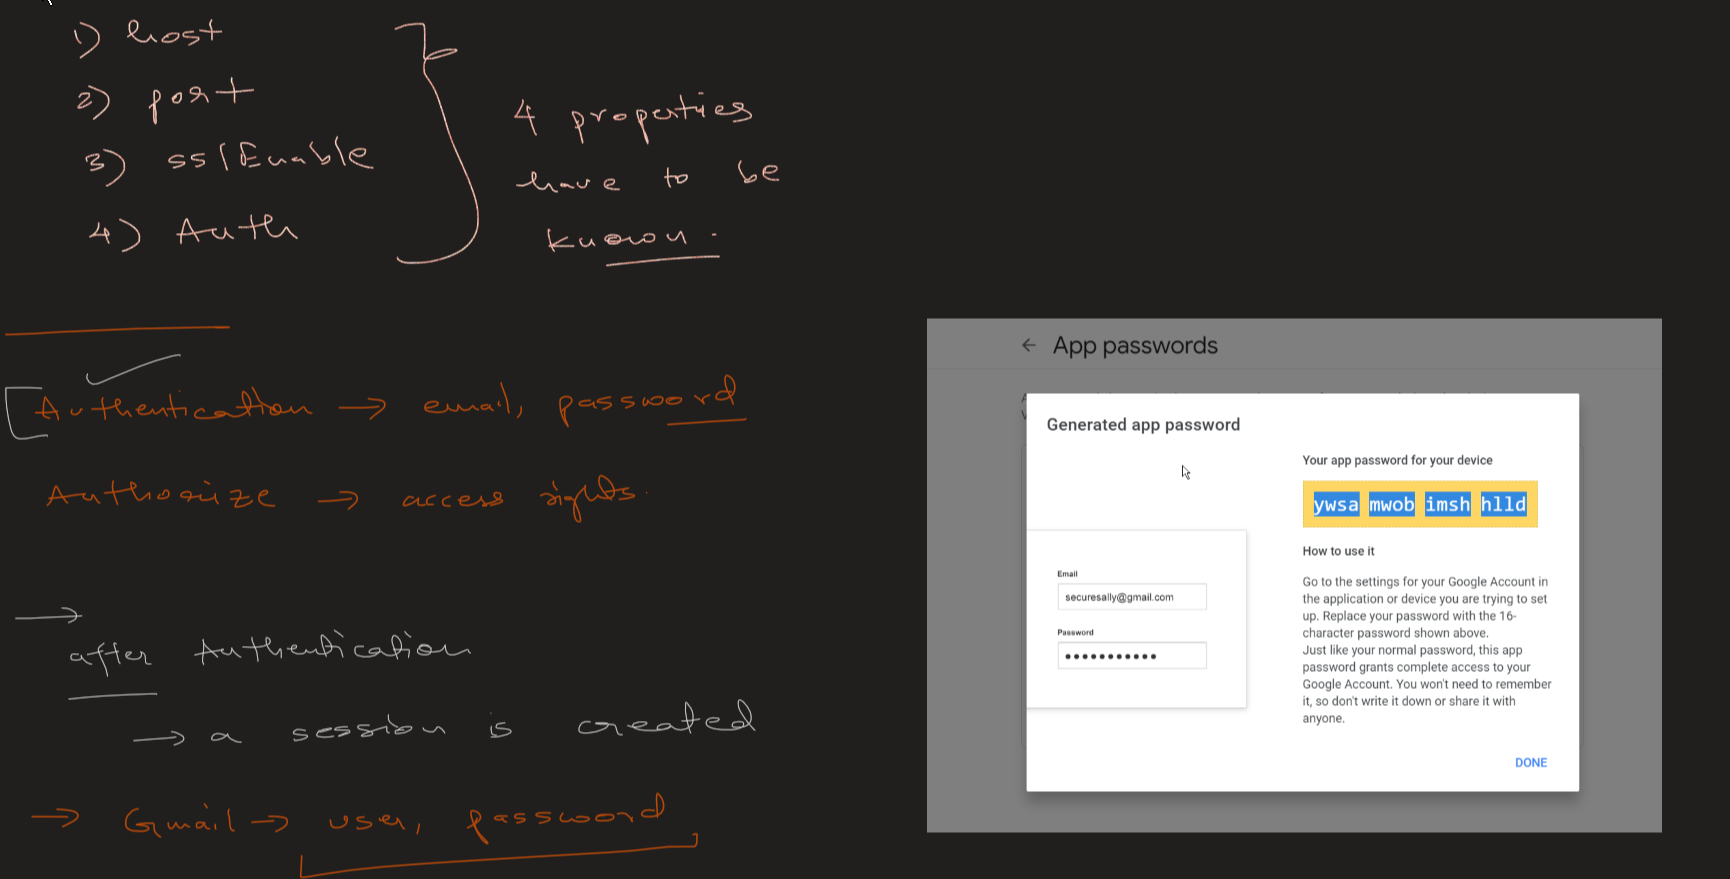 1) host
2) port
3) sslEnable
4) Auth
4 properties
have to be
known.
Authentication → email, password
Authorize → access rights.
→
after Authentication
→ a session is created
→ Gmail → user, password
← App passwords
Generated app password
Your app password for your device
ywsa mwob imsh hlld
How to use it
Go to the settings for your Google Account in
the application or device you are trying to set
up. Replace your password with the 16-
character password shown above.
Just like your normal password, this app
password grants complete access to your
Google Account. You won't need to remember
it, so don't write it down or share it with
anyone.
Email
securesally@gmail.com
Password
•••••••••••
DONE